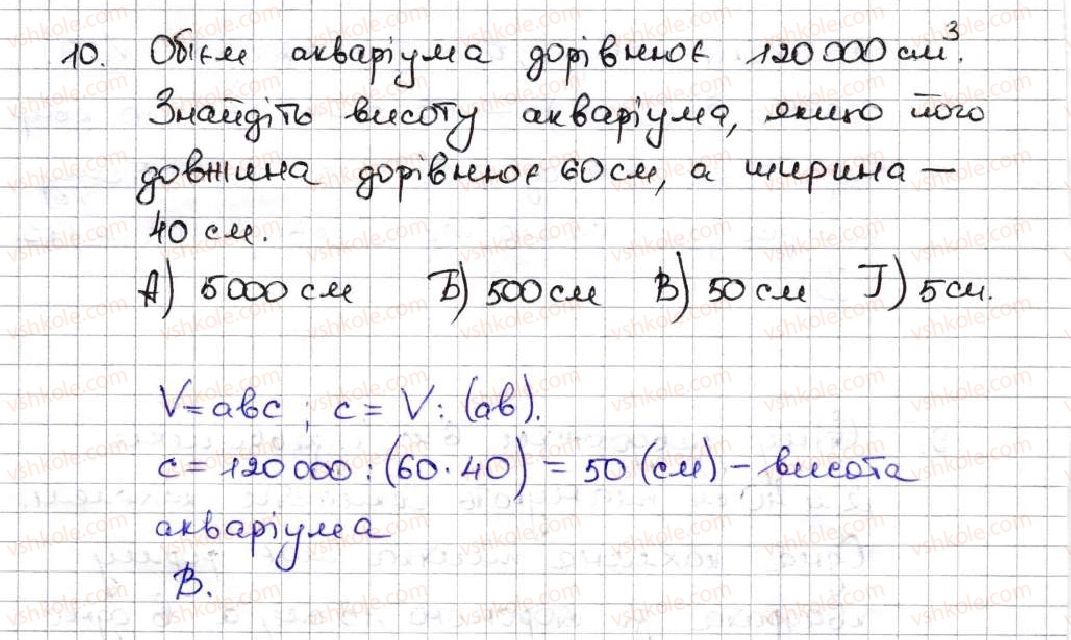 10. Об'єм акваріума дорівнює 120 000 см³.
Знайдіть висоту акваріума, якщо його
довжина дорівнює 60 см, а ширина —
40 см.
А) 5000 см Б) 500 см В) 50 см Г) 5 см.
V = abc; c = V : (ab).
c = 120 000 : (60 · 40) = 50 (см) – висота
акваріума
В.